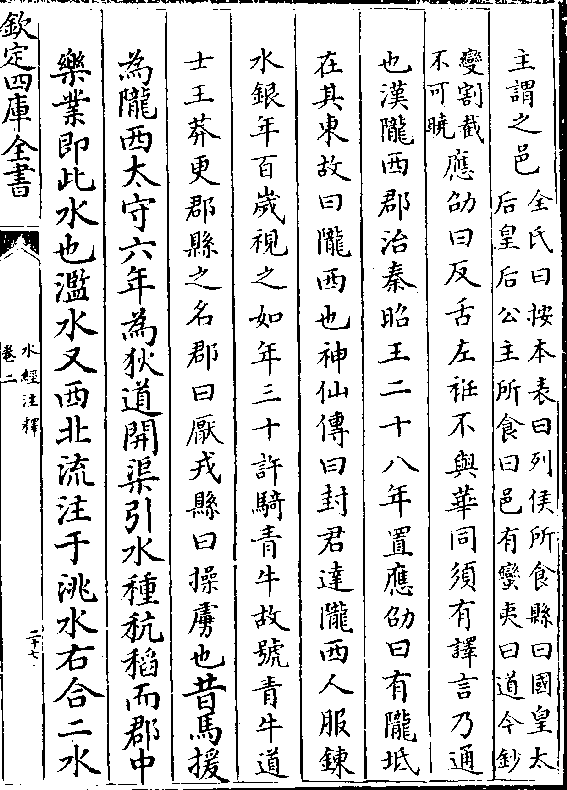 主謂之邑全氏曰按本表曰列侯所食縣曰國皇太
后皇后公主所食曰邑有蠻夷曰道今鈔
變割截
不可曉應劭曰反舌左袵不與華同須有譯言乃通
也漢隴西郡治秦昭王二十八年置應劭曰有隴坻
在其東故曰隴西也神仙傳曰封君達隴西人服鍊
水銀年百歲視之如年三十許騎青牛故號青牛道
士王莽更郡縣之名郡曰厭戎縣曰操虜也昔馬援
為隴西太守六年為狄道開渠引水種秔稻而郡中
樂業即此水也濫水又西北流注于洮水右合二水
欽定四庫全書
水經注釋
卷二
二十七